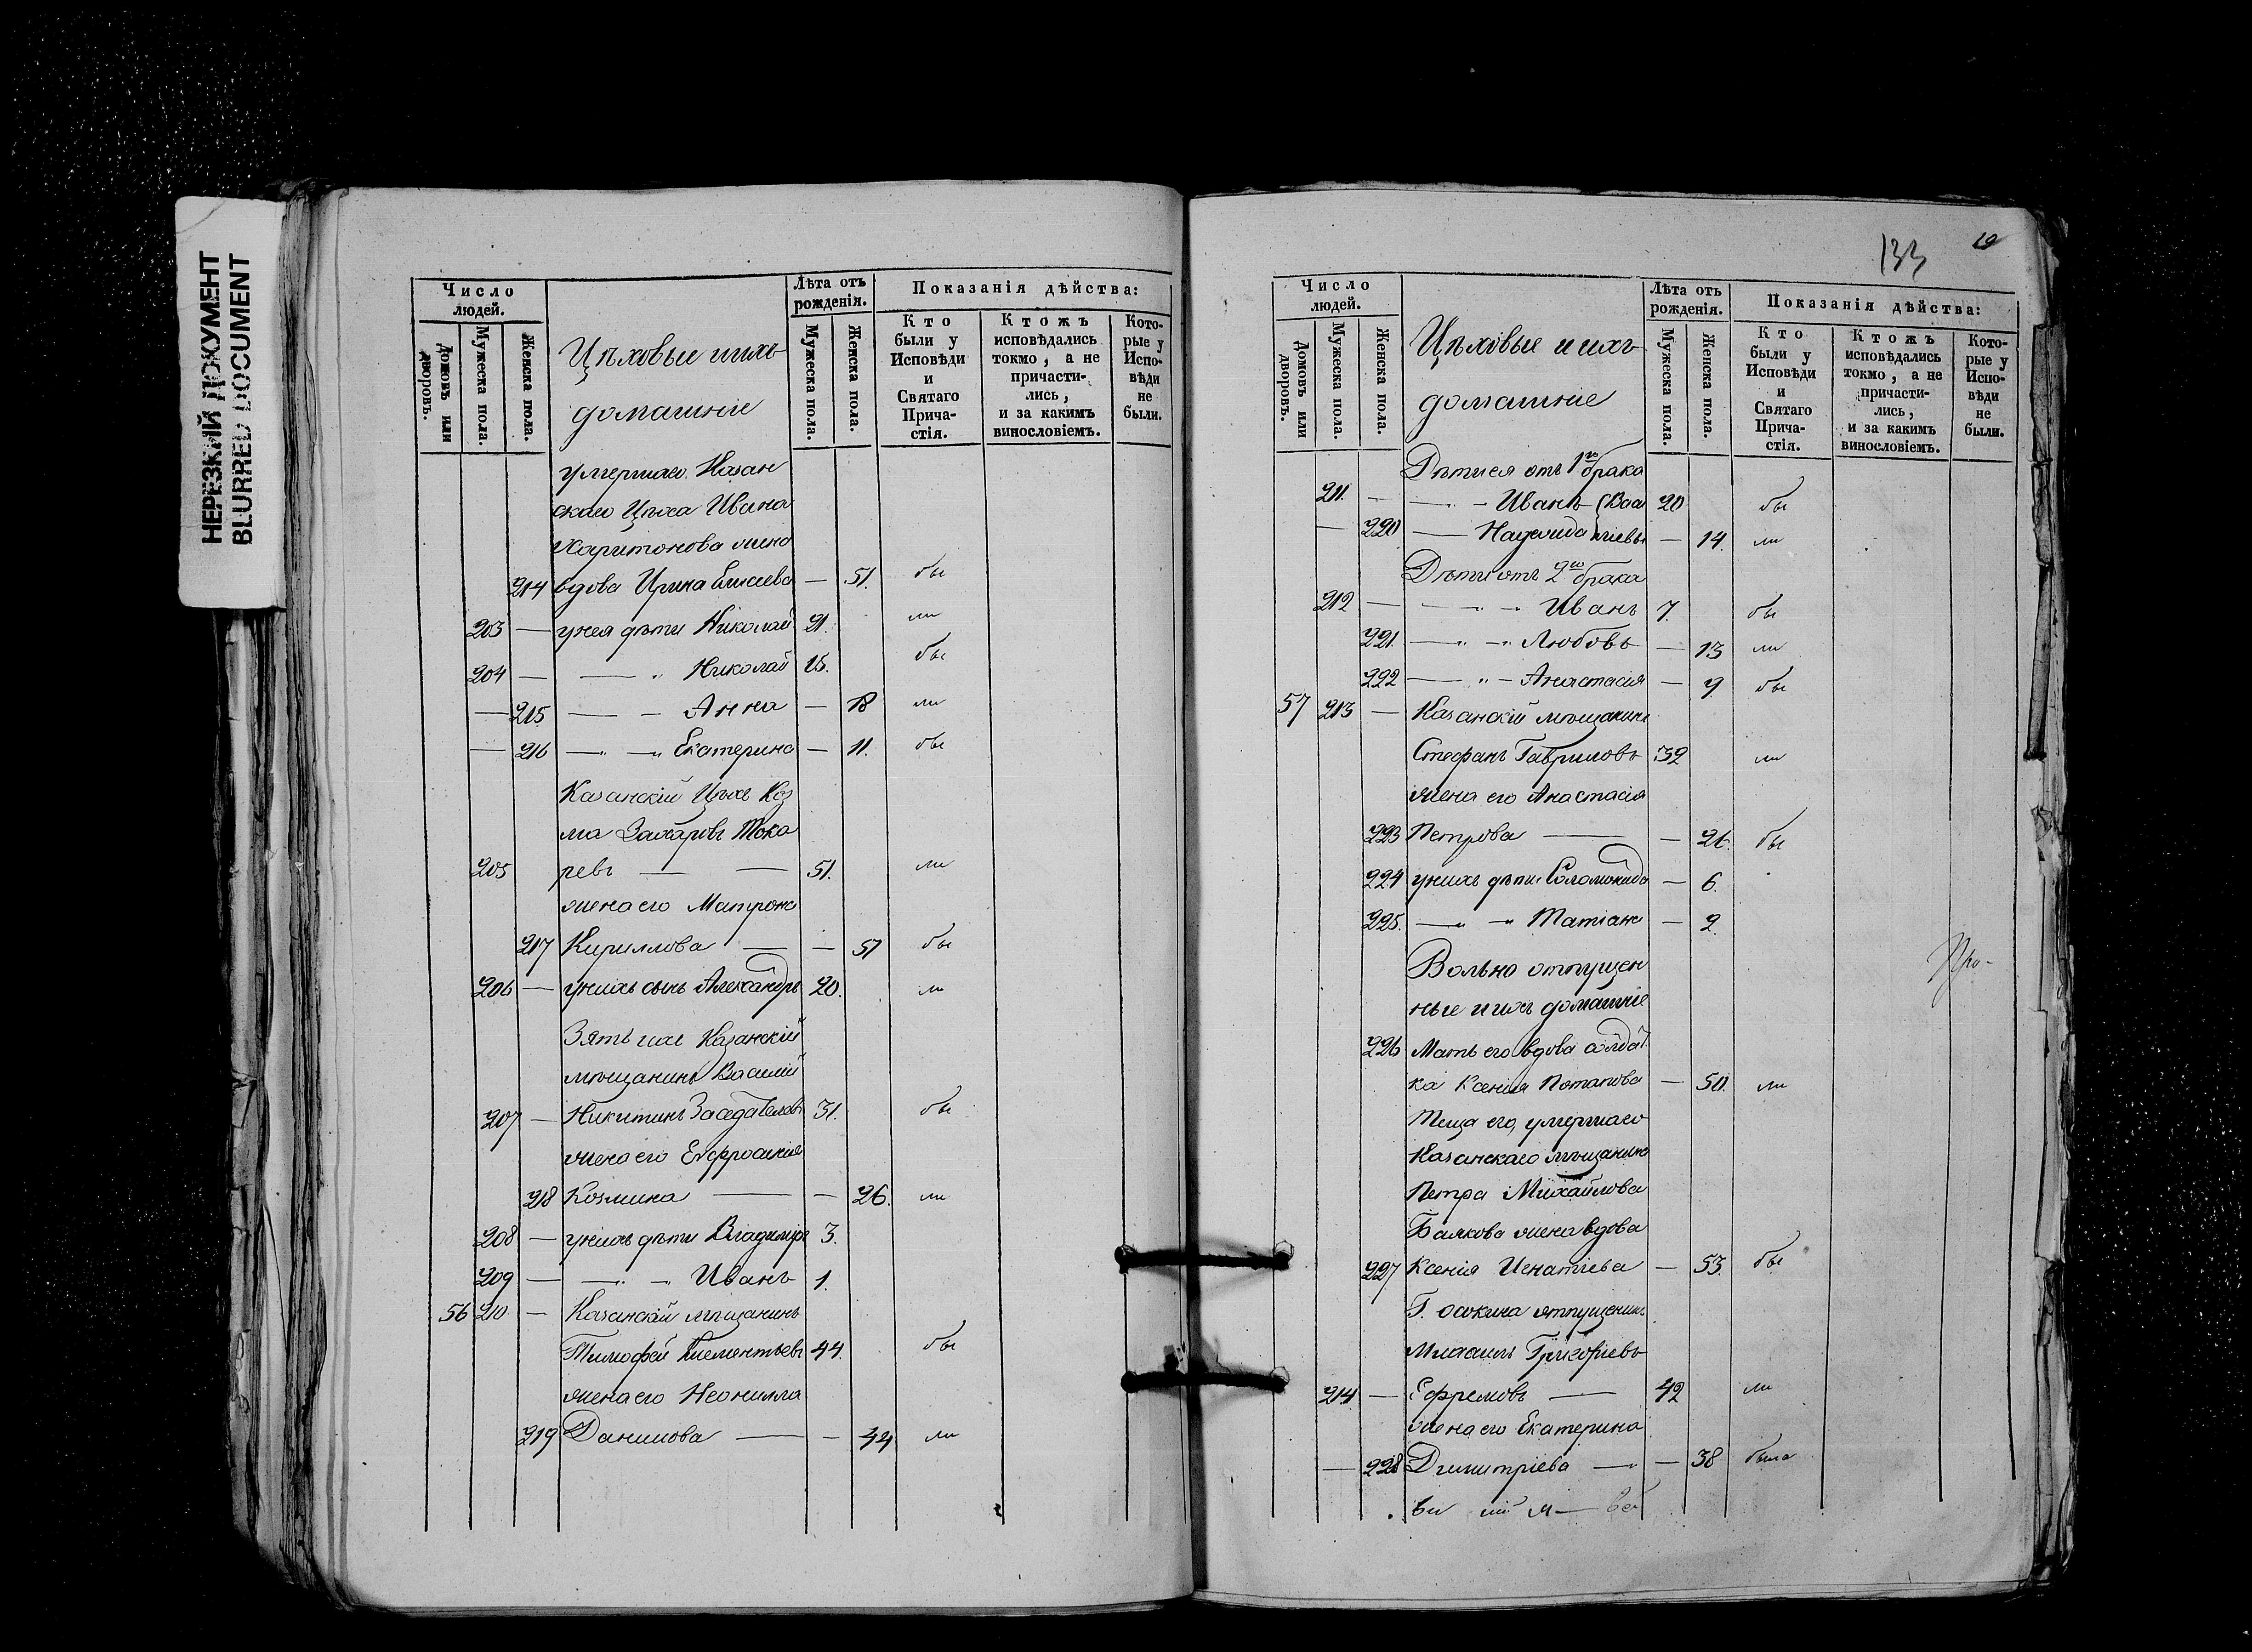 НЕРЕЗКИЙ ДОКУМЕНТ
BLURRED DOCUMENT
Число людей.
Домовъ или дворовъ.
Мужеска пола.
Женска пола.
Цѣховые и ихъ
домашніе
Лѣта отъ рожденія.
Мужеска пола.
Женска пола.
Показанія дѣйства:
Кто были у Исповѣди и Святаго Прича-стія.
Ктожъ исповѣдались токмо, а не причасти-лись, и за какимъ винословіемъ.
Кото-рые у Испо-вѣди не были.
умершаго Казан
скаго Цѣха Ивана
Харитонова жена
214 вдова Ирина Елисеева — 51. бы
203 — у нея дѣти Николай 21. ли
204 — — " Николай 15. бы
— 215 — — Анна — 18 ли
— 216 —"— —" Екатерина — 11. бы
Казанскій Цѣха Коз
ма Захаровъ Тока
205 ревъ — — 51. ли
жена его Матрона
217 Кириллова — — 51 бы
206 — у нихъ сынъ Александръ 20. ли
Зять ихъ Казанскій
мѣщанинъ Василій
207 — Никитинъ 31. бы
жена его Евфросинія
218 Козмина — — 26. ли
208 — у нихъ дѣти Владиміръ 3.
209 — —"— —" Иванъ 1.
56 210 — Казанскій мѣщанинъ
Тимофей Клементьевъ 44. бы
жена его Неонилла
219 Данилова — — 44 ли
133
19
Число людей.
Домовъ или дворовъ.
Мужеска пола.
Женска пола.
Цѣховые и ихъ
домашніе
Лѣта отъ рожденія.
Мужеска пола.
Женска пола.
Показанія дѣйства:
Кто были у Исповѣди и Святаго Прича-стія.
Ктожъ исповѣдались токмо, а не причасти-лись, и за какимъ винословіемъ.
Кото-рые у Испо-вѣди не были.
Дѣти ея отъ 1го брака
211. — —"— Иванъ 20 бы
— 220 — Надежда — 14. ли
Дѣти отъ 2го брака
212 — —"— —" Иванъ 7. бы
221. —"— —" Любовь — 13 ли
222 —"— Анастасія — 9. бы
57 213 — Казанскій мѣщанинъ
Стефанъ Гавриловъ 32 ли
жена его Анастасія
223 Петрова — — 26. бы
224 у нихъ дѣти Соломонида — 6.
225. —"— —" Татіана — 2.
Вольно отпущен
ные и ихъ домашніе
226 Мать его вдова солдат
ка Ксенія Потапова — 50. ли
Теща его, умершаго
Казанскаго мѣщанина
Петра Михайлова
жена вдова
227 Ксенія Игнатіева — 53. бы
Г. Осокина отпущенникъ
Михаилъ Григоріевъ
214 — Ефремовъ — 42 ли
жена его Екатерина
— 228 Димитріева — — 38 была